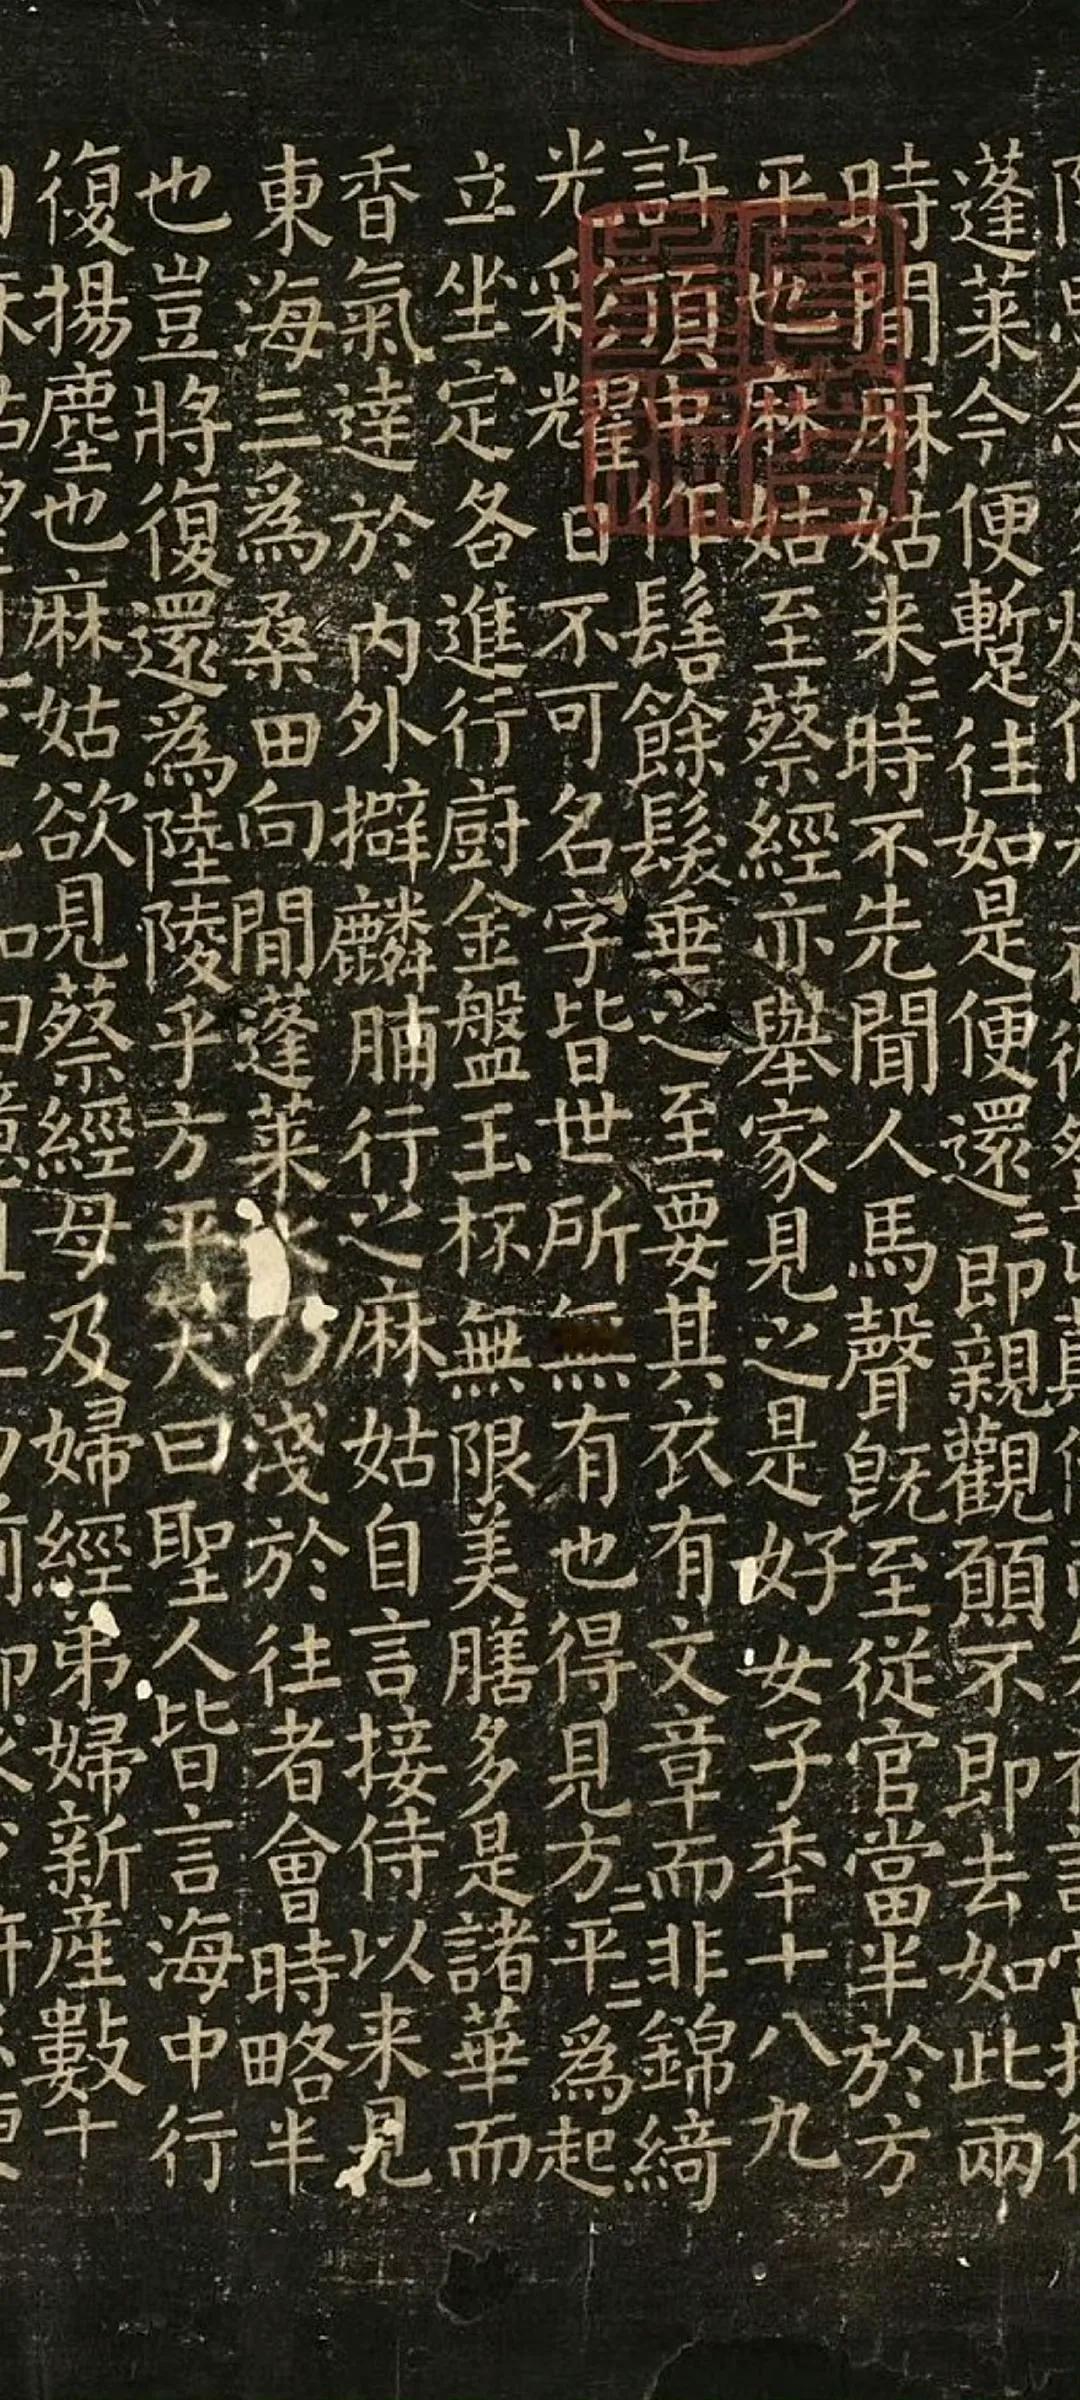 蓬莱今便蹔往如是便還〻即親觀願不即去如此兩
時間麻姑来〻時不先聞人馬聲旣至從官當半於方
平也麻姑至蔡經亦舉家見之是好女子秊十八九
許頂中作髻餘髮垂之至要其衣有文章而非錦綺
光彩耀日不可名字皆世所無有也得見方〻平〻爲起
立坐定各進行廚金盤玉杯無限美膳多是諸華而
香氣達於内外擗麟脯行之麻姑自言接侍以来見
東海三爲桑田向間蓬莱水乃淺於往者會時略半
也豈將復還爲陸陵乎方平笑曰聖人皆言海中行
復揚塵也麻姑欲見蔡經母及婦經弟婦新產數十